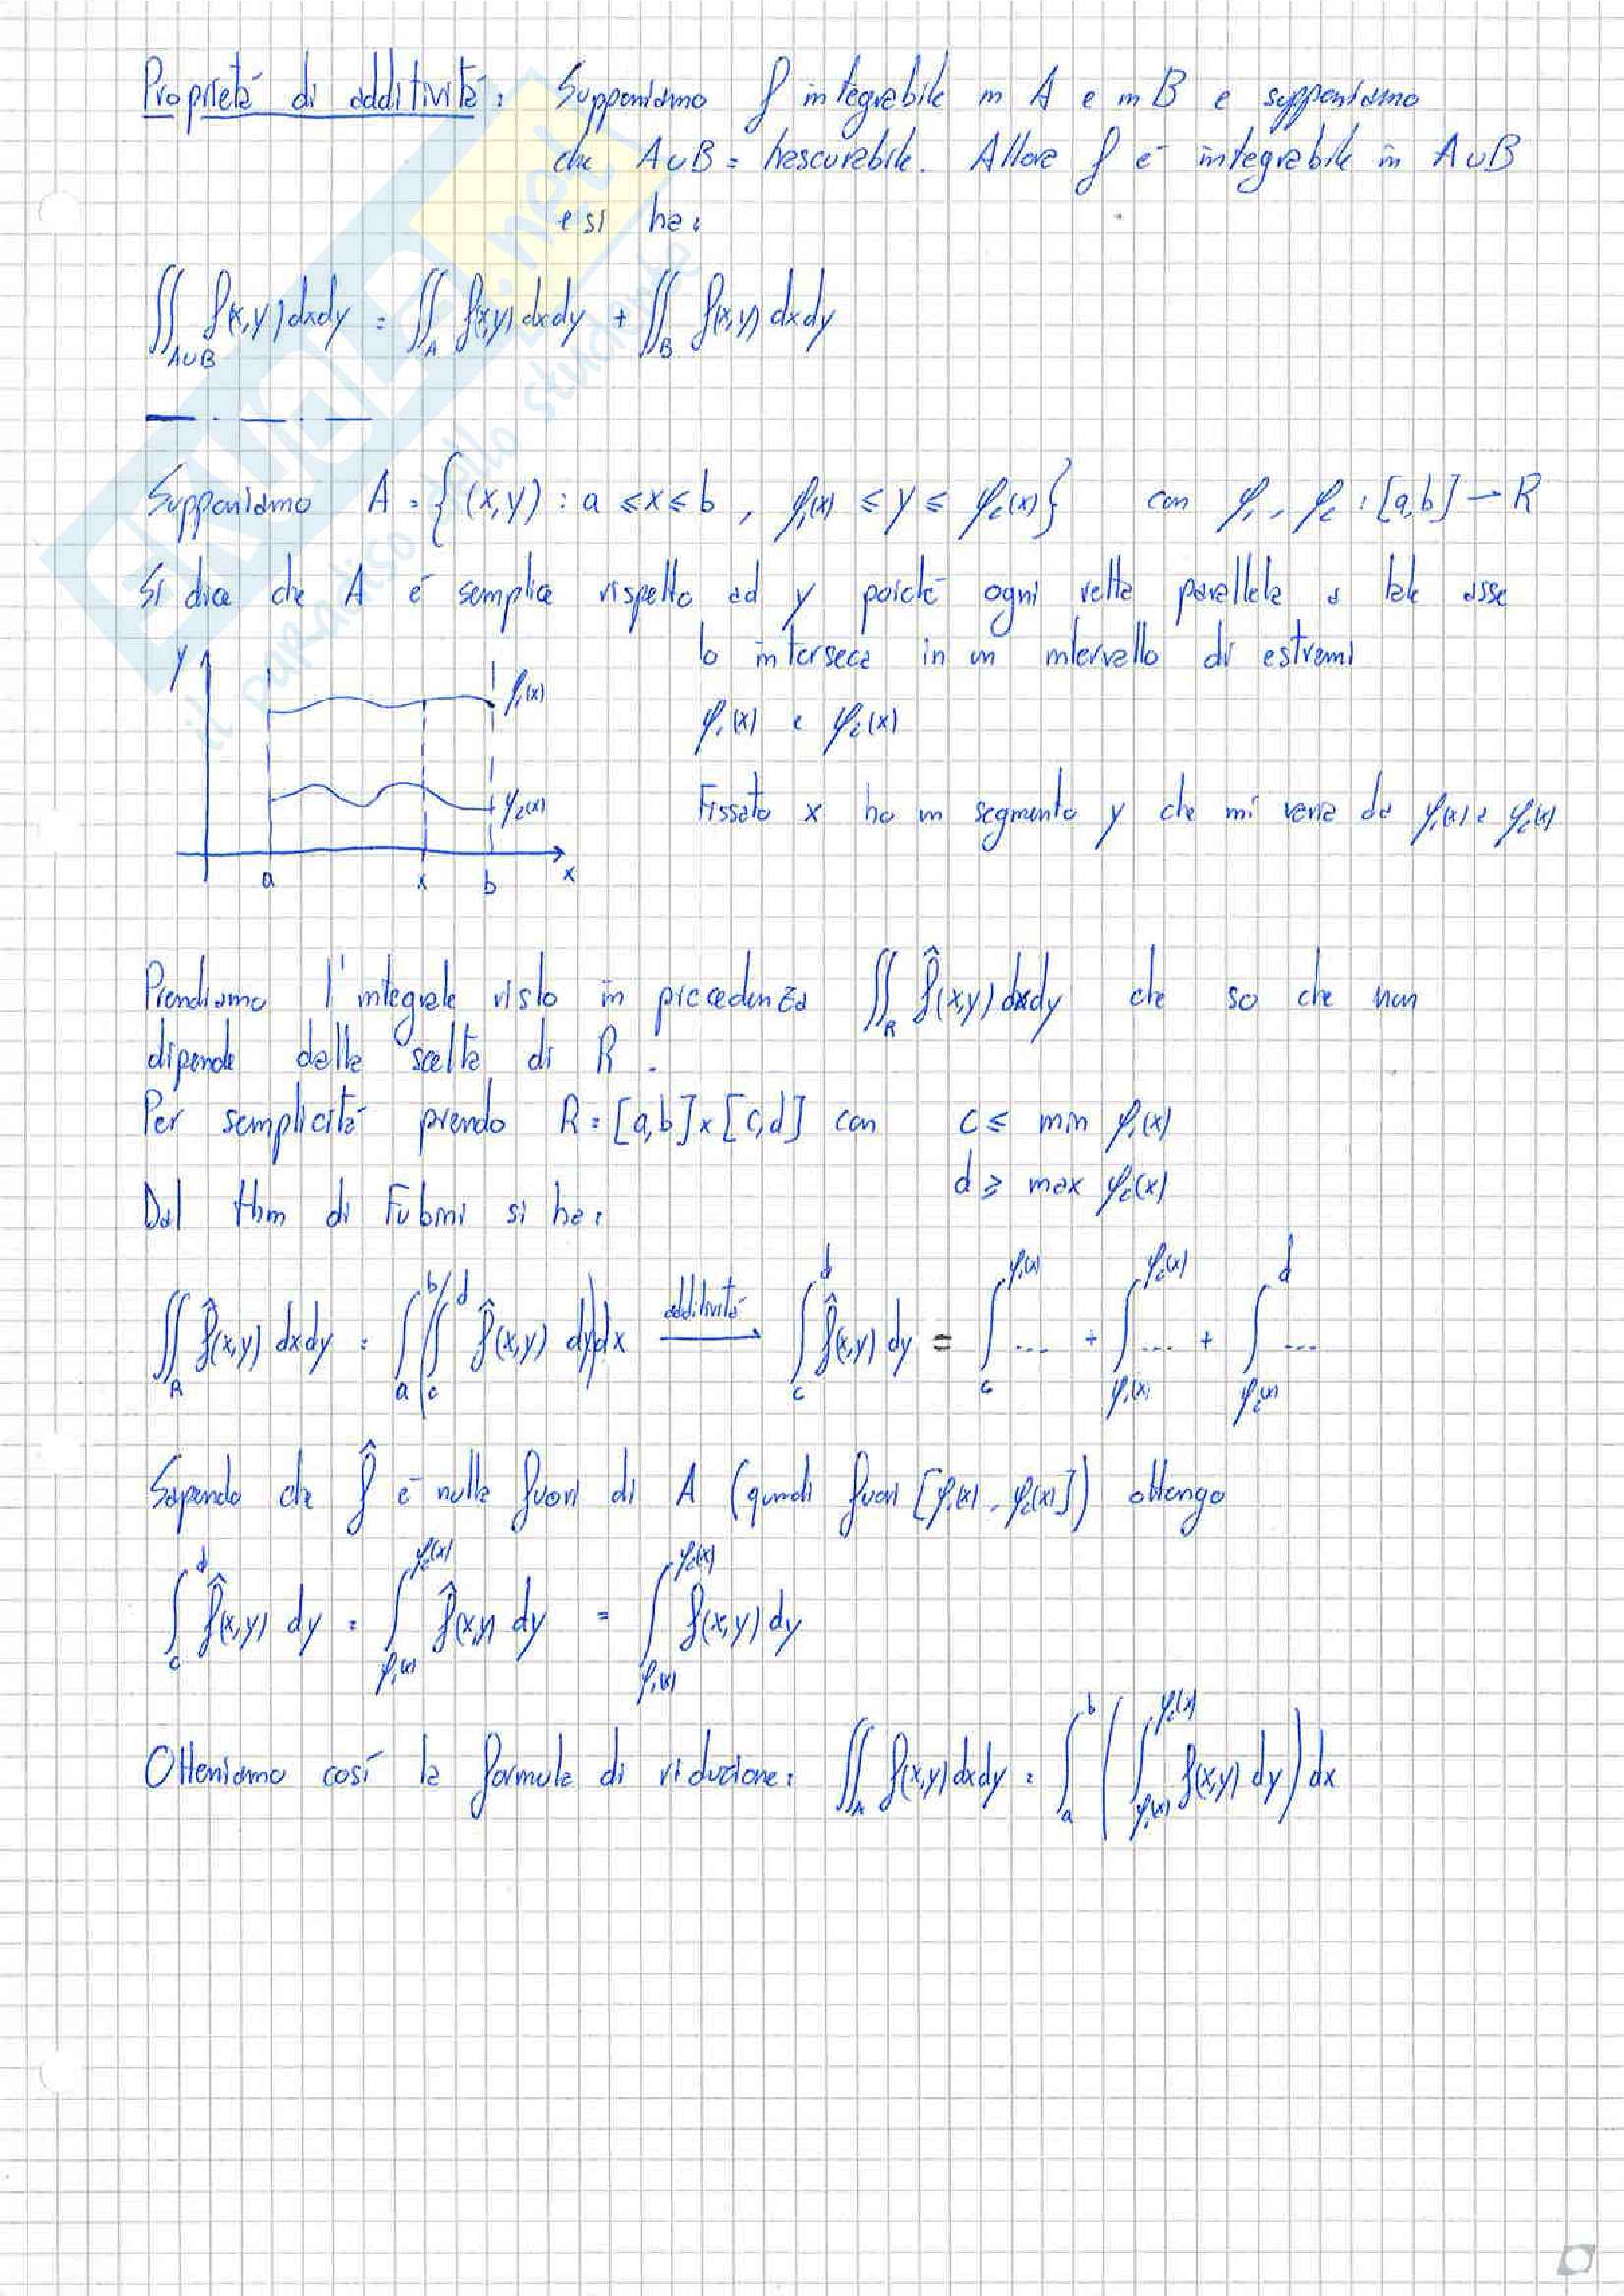 Proprietà di additività: Supponiamo f integrabile in A e in B e supponiamo
che A∪B = trascurabile. Allora f è integrabile in A∪B
e si ha:
∬_{A∪B} f(x,y) dxdy = ∬_A f(x,y) dxdy + ∬_B f(x,y) dxdy
Supponiamo A = {(x,y) : a ≤ x ≤ b , φ₁(x) ≤ y ≤ φ₂(x)} con φ₁, φ₂ : [a,b] → R
Si dice che A è semplice rispetto ad y poiché ogni retta parallela a tale asse
lo interseca in un intervallo di estremi
φ₁(x) e φ₂(x)
y
φ₁(x)
φ₂(x)
a x b x
Fissato x ho un segmento y che mi varia da φ₁(x) a φ₂(x)
Prendiamo l'integrale visto in precedenza ∬_R f̂(x,y) dxdy che so che non
dipende dalla scelta di R.
Per semplicità prendo R = [a,b] x [c,d] con c ≤ min φ₁(x)
d ≥ max φ₂(x)
Dal thm di Fubini si ha:
∬_R f̂(x,y) dxdy = ∫_a^b (∫_c^d f̂(x,y) dy) dx additività → ∫_c^d f̂(x,y) dy = ∫_c^{φ₁(x)} ... + ∫_{φ₁(x)}^{φ₂(x)} ... + ∫_{φ₂(x)}^d ...
Sapendo che f̂ è nulla fuori di A (quindi fuori [φ₁(x), φ₂(x)]) ottengo
∫_c^d f̂(x,y) dy = ∫_{φ₁(x)}^{φ₂(x)} f̂(x,y) dy = ∫_{φ₁(x)}^{φ₂(x)} f(x,y) dy
Otteniamo così la formula di riduzione: ∬_A f(x,y) dxdy = ∫_a^b (∫_{φ₁(x)}^{φ₂(x)} f(x,y) dy) dx
.net
il paradiso dello studente